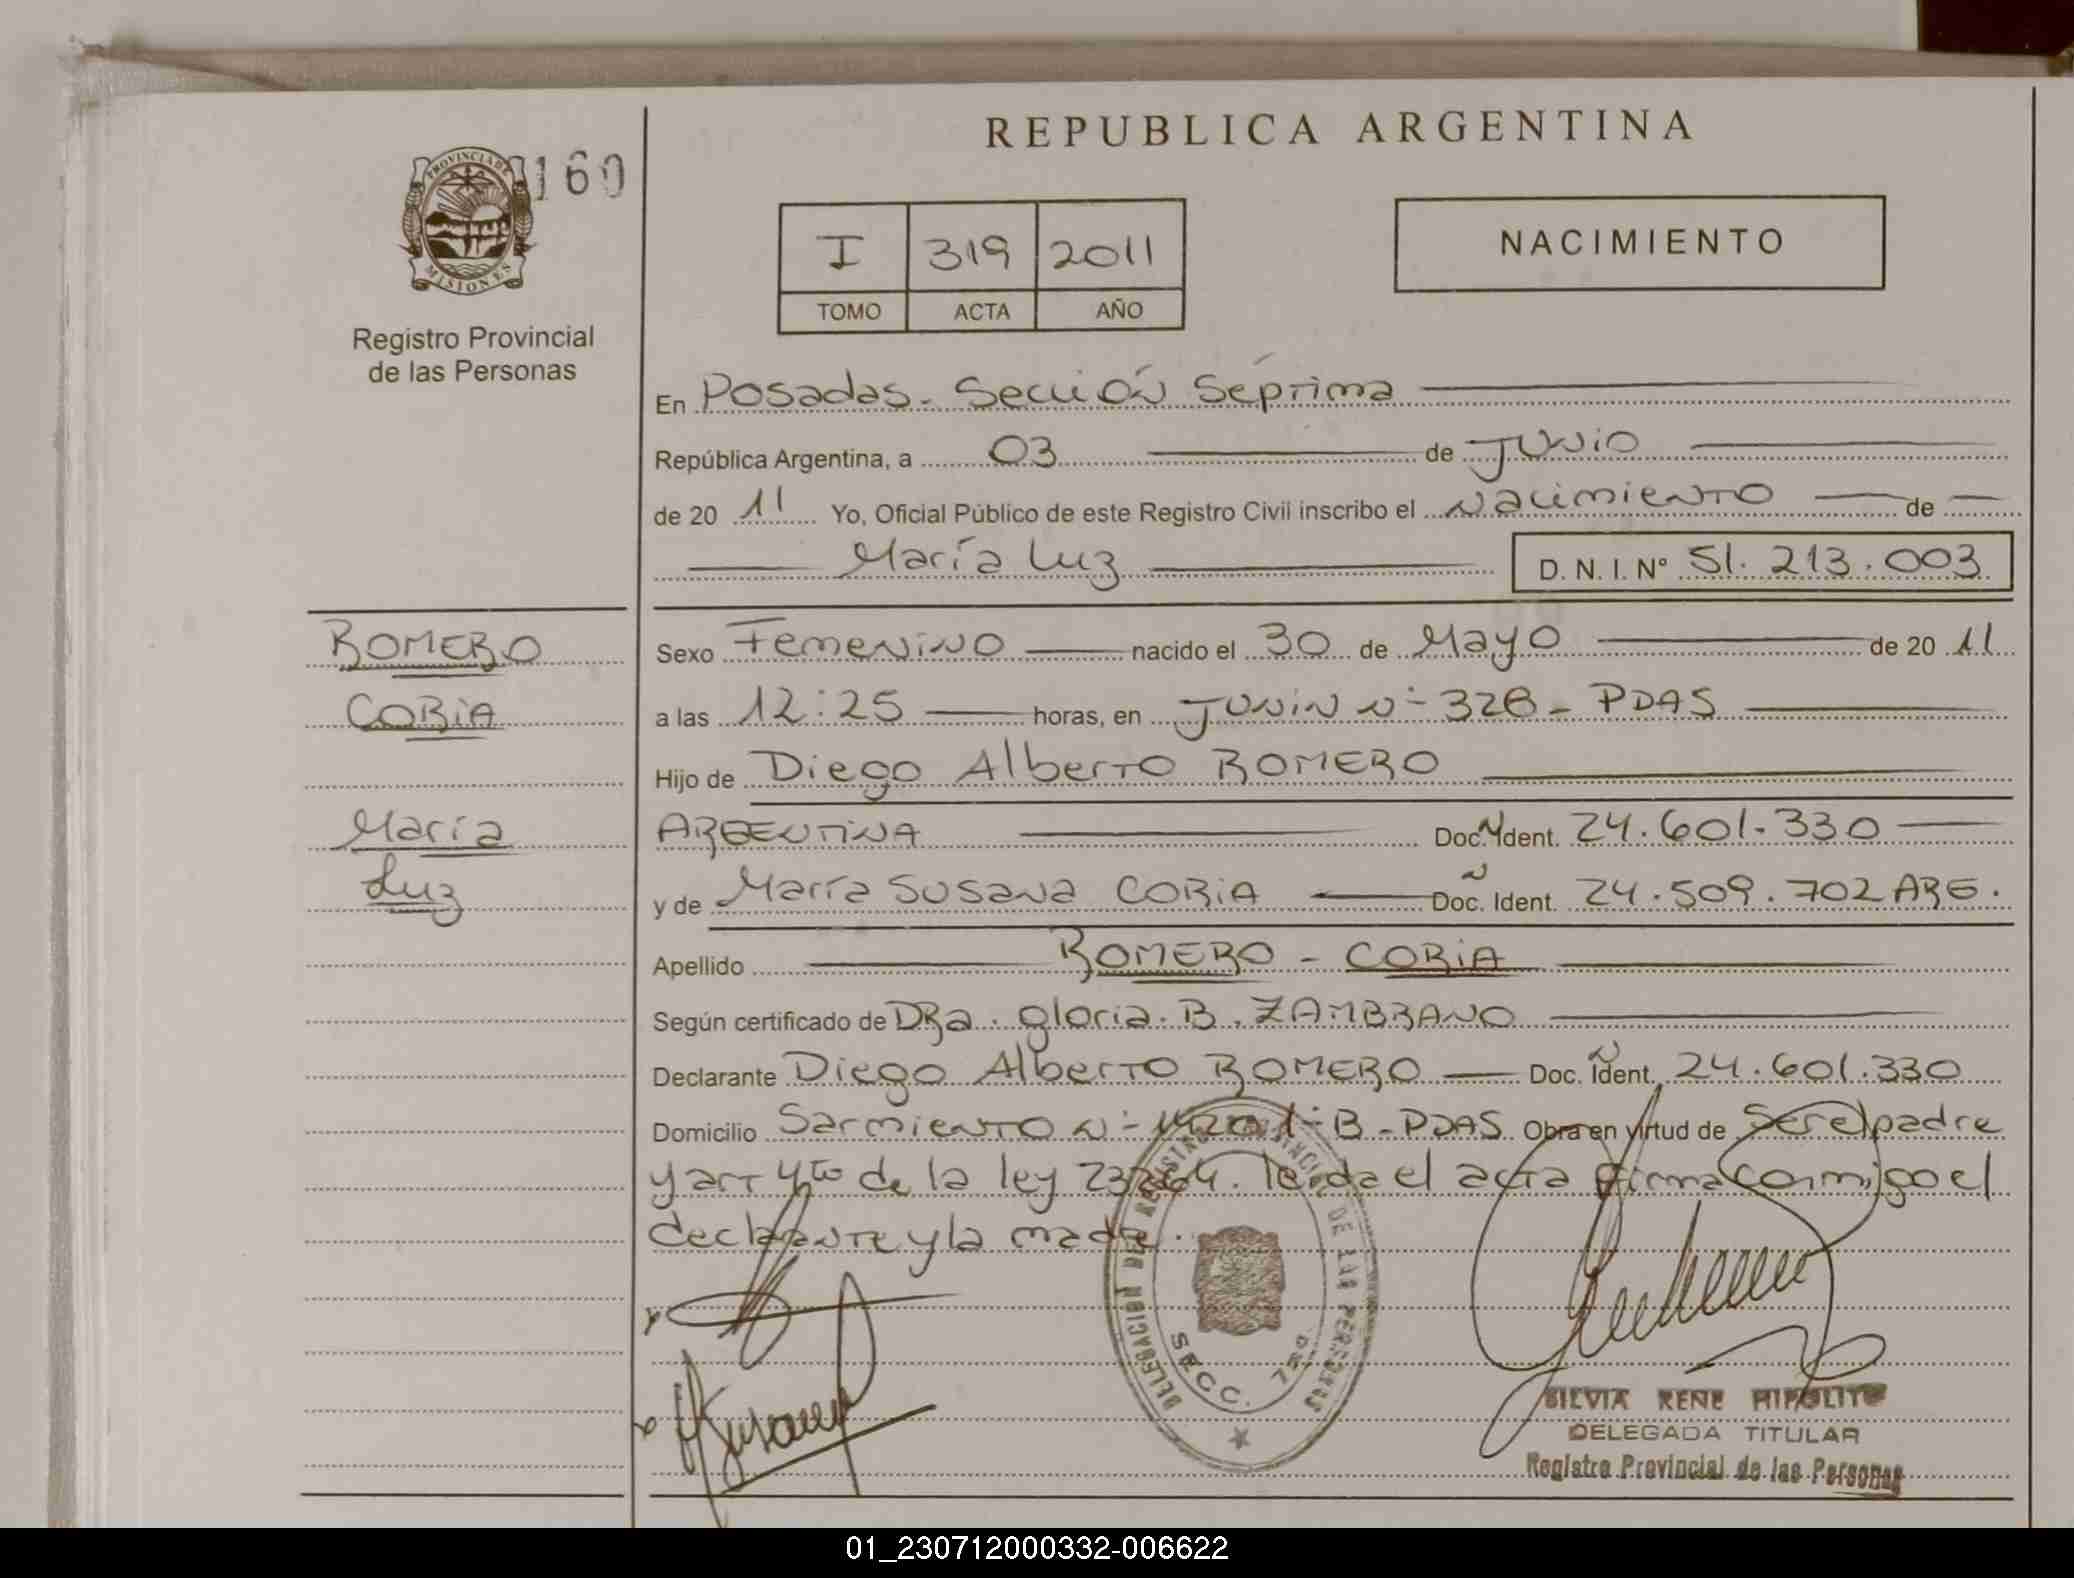 REPUBLICA ARGENTINA
PROVINCIA DE MISIONES
160
I 319 2011
TOMO ACTA AÑO
NACIMIENTO
Registro Provincial
de las Personas
En Posadas - Sección Séptima
República Argentina, a 03 de Junio
de 20 11 Yo, Oficial Público de este Registro Civil inscribo el nacimiento de
María Luz D. N. I. N° 51.213.003
ROMERO
CORIA
María
Luz
Sexo Femenino nacido el 30 de Mayo de 20 11
a las 12:25 horas, en Junin N- 328 - PDAS
Hijo de Diego Alberto ROMERO
ARGENTINA Doc. Ident. 24.601.330
y de María Susana CORIA Doc. Ident. 24.509.702 ARG.
Apellido ROMERO - CORIA
Según certificado de DRa. Gloria. B. ZAMBRANO
Declarante Diego Alberto ROMERO Doc. Ident. 24.601.330
Domicilio Sarmiento N- B - PDAS Obra en virtud de Ser el padre
y art 4to de la ley 23264. leida el acta firma conmigo el
declarante y la madre.
DELEGACION DEL REGISTRO PROVINCIAL DE LAS PERSONAS
SECC. 7MA
SILVIA RENE HIPOLITO
DELEGADA TITULAR
Registro Provincial de las Personas
01_230712000332-006622